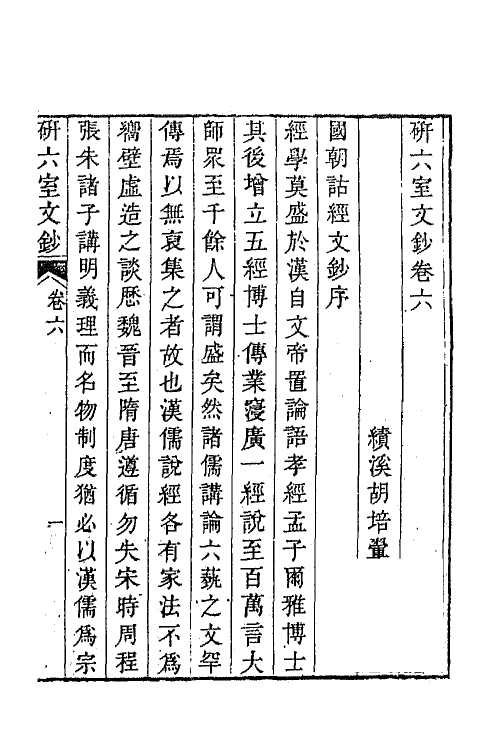 研六室文鈔卷六
績溪胡培翬
國朝詁經文鈔序
經學莫盛於漢自文帝置論語孝經孟子爾雅博士
其後增立五經博士傳業寖廣一經說至百萬言大
師眾至千餘人可謂盛矣然諸儒講論六蓺之文罕
傳焉以無裒集之者故也漢儒說經各有家法不爲
嚮壁虛造之談歷魏晉至隋唐遵循勿失宋時周程
張朱諸子講明義理而名物制度猶必以漢儒爲宗
研六室文鈔 卷六 一